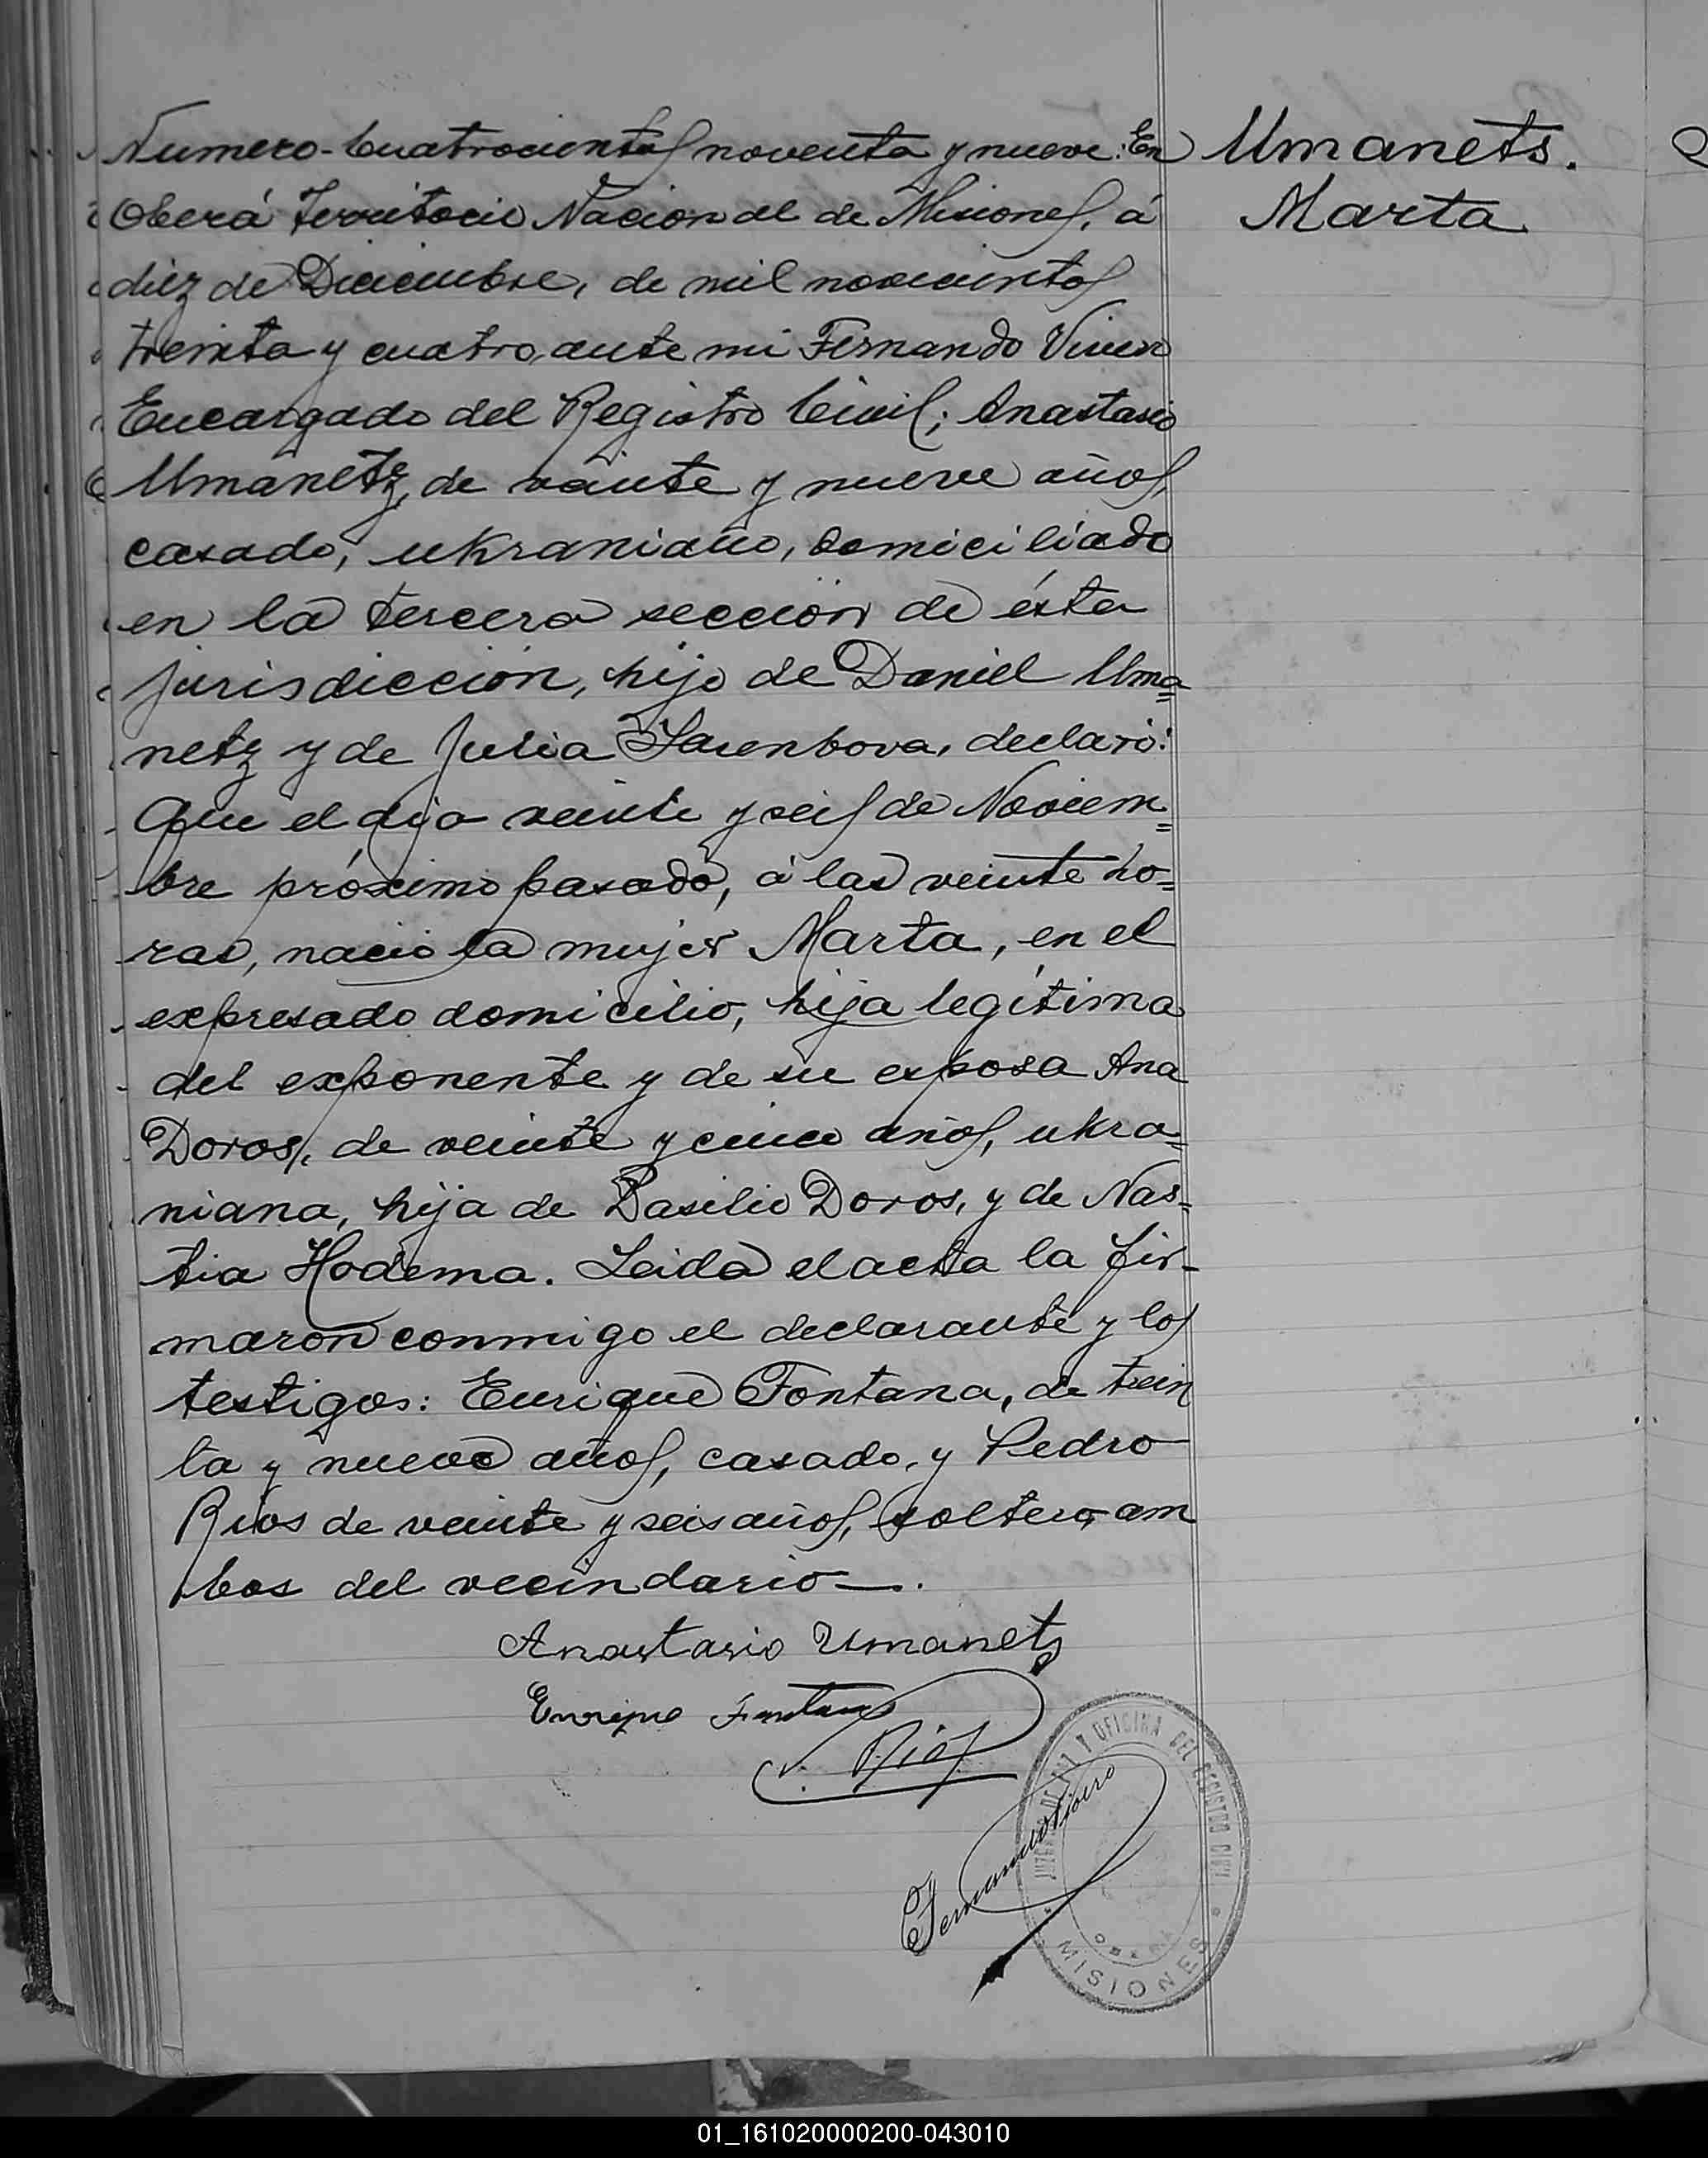 Numero-Cuatrocientos noventa y nueve: En
Oberá Territorio Nacional de Misiones, á
diez de Diciembre, de mil novecientos
treinta y cuatro, ante mi Fernando
Encargado del Registro Civil; Anastasio
Umanetz, de veinte y nueve años,
casado, ukraniano, domiciliado
en la tercera sección de ésta
jurisdicción, hijo de Daniel Uma=
netz y de Julia declaró:
Que el dia veinte y seis de Noviem=
bre próximo pasado, á las veinte ho=
ras, nació la mujer Marta, en el
expresado domicilio, hija legítima
del exponente y de su esposa Ana
Doros, de veinte y cinco años, ukra=
niana, hija de Basilio Doros, y de Nas=
tia Hodema. Leida el acta la fir-
maron conmigo el declarante y los
testigos: Enrique Fontana, de trein
ta y nueve años, casado, y Pedro
Rios de veinte y seis años, soltero, am
bos del vecindario—.
Umanets.
Marta
Anastasio Umanetz
Enrique Fontana
Rios
Fernando
JUZGADO DE PAZ Y OFICINA DEL REGISTRO CIVIL
OBERÁ
MISIONES
01_161020000200-043010